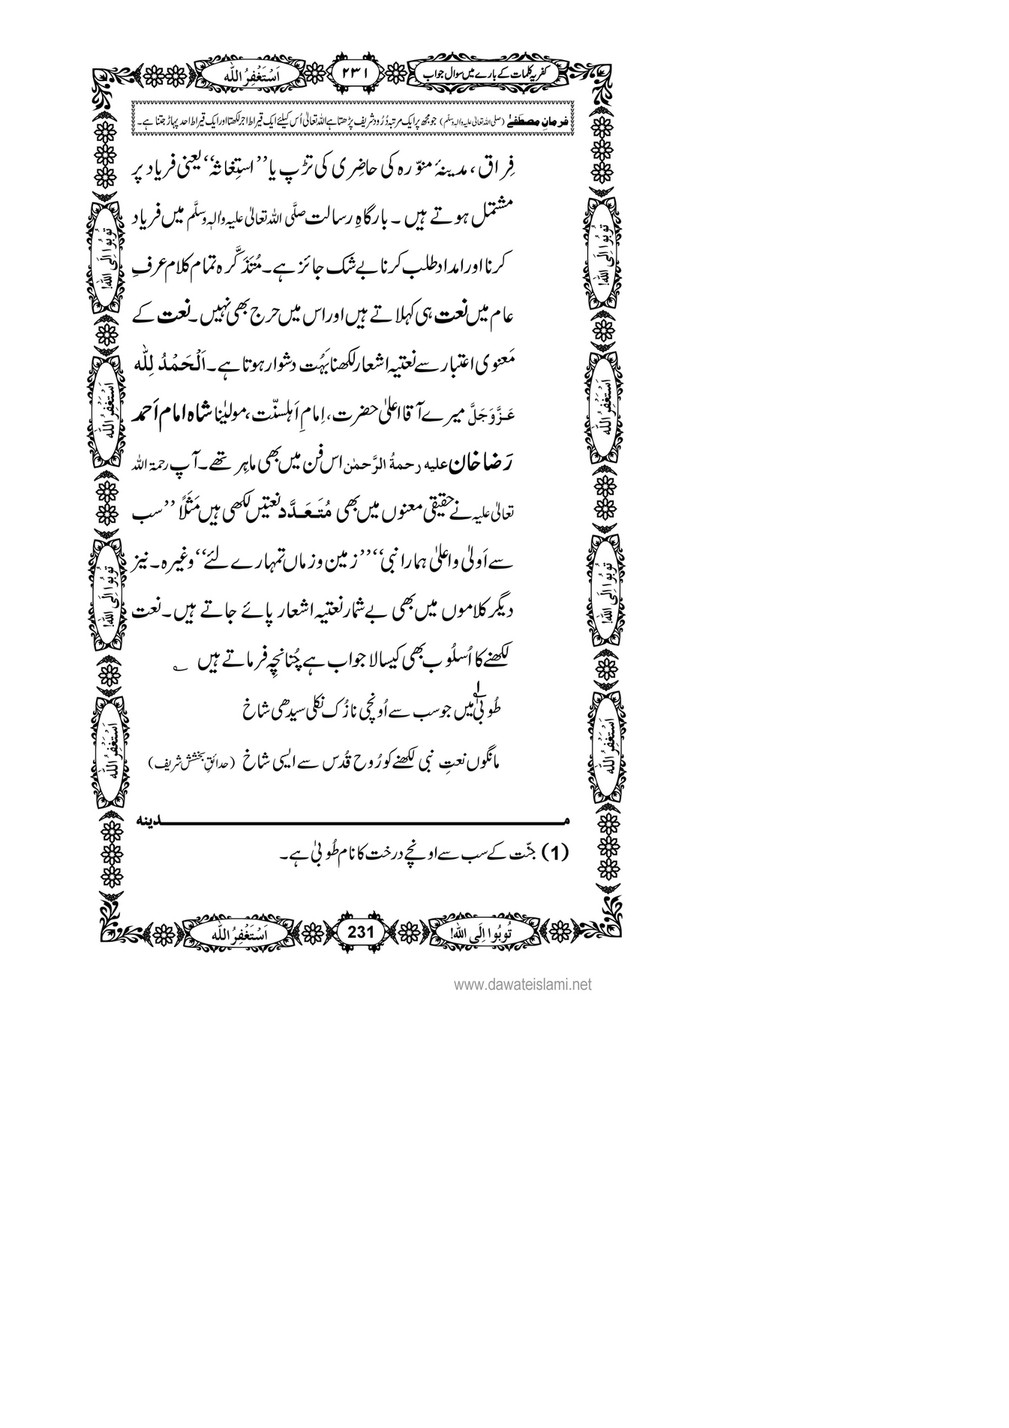 کفریہ کلمات کے بارے میں سوال جواب
۲۳۱
اَسْتَغْفِرُ اللہ
فرمانِ مصطفٰے (صلی اللہ تعالیٰ علیہ والہ وسلم) جو مجھ پر ایک مرتبہ دُرُود شریف پڑھتا ہے اللہ تعالیٰ اُس کیلئے ایک قیراط اجر لکھتا اور ایک قیراط احد پہاڑ جتنا ہے۔
فِراق، مدینۂ منوّرہ کی حاضِری کی تڑپ یا ’’اِستِغاثہ‘‘ یعنی فریاد پر
مشتمل ہوتے ہیں۔ بارگاہِ رسالت صلَّی اللہ تعالیٰ علیہ والہٖ وسلَّم میں فریاد
کرنا اور امداد طلب کرنا بے شک جائز ہے۔ مُتَذَکَّرہ تمام کلام عرفِ
عام میں نعت ہی کہلاتے ہیں اور اس میں حرج بھی نہیں۔ نعت کے
مَعنوی اعتبار سے نعتیہ اشعار لکھنا بَہُت دشوار ہوتا ہے۔ اَلْحَمْدُ لِلّٰہ
عَزَّوَجَلَّ میرے آقا اعلیٰ حضرت، اِمامِ اَہلسنّت، مولیٰنا شاہ امام اَحمد
رَضا خان علیہ رحمۃُ الرَّحمٰن اس فن میں بھی ماہِر تھے۔ آپ رحمۃ اللہ
تعالیٰ علیہ نے حقیقی معنوں میں بھی مُتَعَدَّد نعتیں لکھی ہیں مَثَلًا ’’سب
سے اَولیٰ و اعلیٰ ہمارا نبی‘‘ ’’زمین و زماں تمہارے لئے‘‘ وغیرہ۔ نیز
دیگر کلاموں میں بھی بے شمار نعتیہ اشعار پائے جاتے ہیں۔ نعت
لکھنے کا اُسلُوب بھی کیسا لاجواب ہے چُنانچِہ فرماتے ہیں ؎
طُوبیٰ۱ میں جو سب سے اُونچی نازُک نکلی سیدھی شاخ
مانگوں نعتِ نبی لکھنے کو رُوحِ قُدُس سے ایسی شاخ (حدائقِ بخشش شریف)
مـدینہ
(1) جنّت کے سب سے اونچے درخت کا نام طُوبیٰ ہے۔
تُوبُوا اِلَی اللہ!
اَسْتَغْفِرُ اللہ
تُوبُوا اِلَی اللہ!
اَسْتَغْفِرُ اللہ
تُوبُوا اِلَی اللہ!
اَسْتَغْفِرُ اللہ
تُوبُوا اِلَی اللہ!
اَسْتَغْفِرُ اللہ
تُوبُوا اِلَی اللہ!
231
اَسْتَغْفِرُ اللہ
www.dawateislami.net